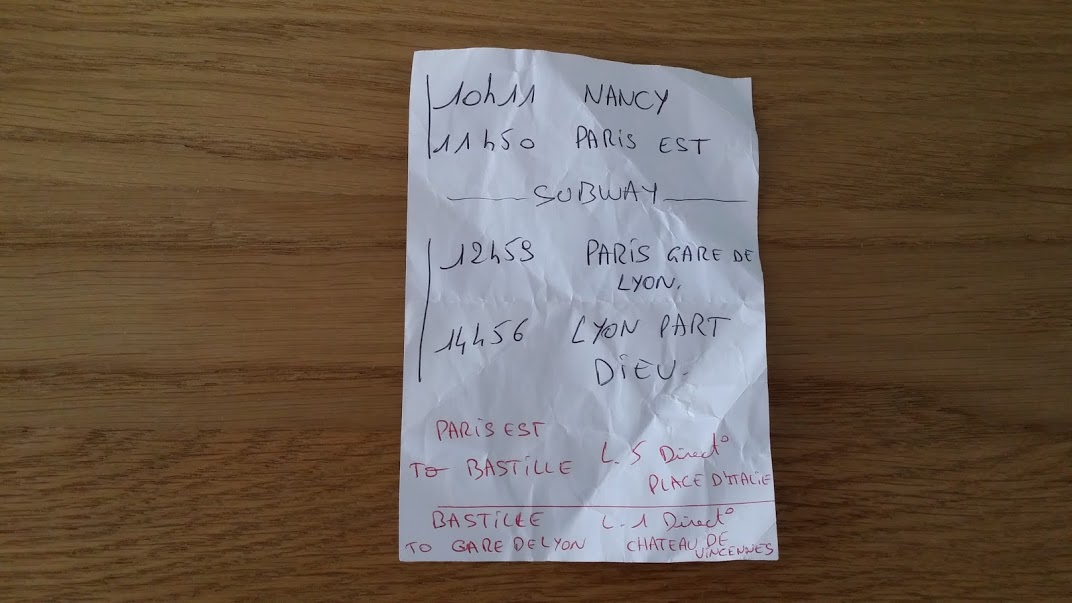 10h11 NANCY
11h50 PARIS EST
SUBWAY
12h59 PARIS GARE DE
LYON.
14h56 LYON PART
DIEU.
PARIS EST
TO BASTILLE L. 5 Direct°
PLACE D'ITALIE
BASTILLE L. 1 Direct°
TO GARE DE LYON CHATEAU DE
VINCENNES